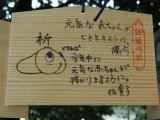 元気な赤ちゃんが
できますように。
陽介
祈
どうか
今年中に
元気な赤ちゃんが
授かりますように。